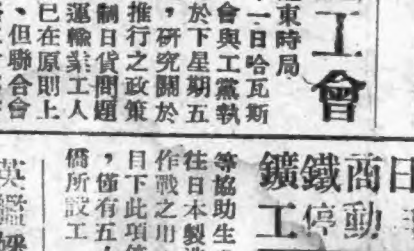 工會
東時局
一日哈瓦斯
會與工黨執
於下星期五
，研究關於
推行之政策
制日貨問題
運輸業工人
已在原則上
、但聯合會
日
商動
鐵停
鑛工
等協助生
往日本製造
作戰之用
目下此項
，僅有五
僑所設工
英艦